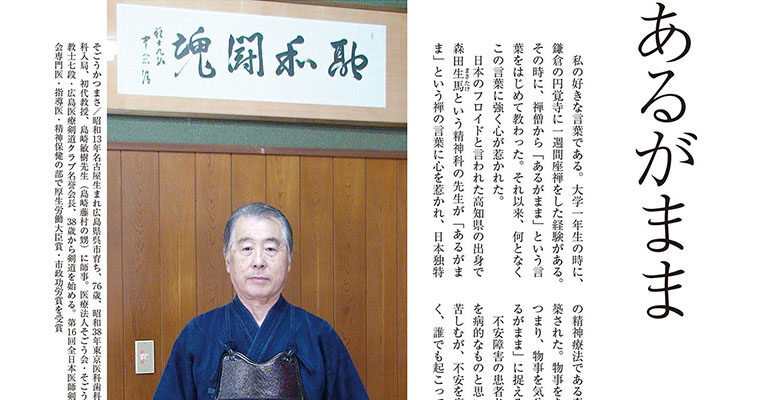 あるがまま
私の好きな言葉である。大学一年生の時に、
鎌倉の円覚寺に一週間座禅をした経験がある。
その時に、禅僧から「あるがまま」という言
葉をはじめて教わった。それ以来、何となく
この言葉に強く心が惹かれた。
日本のフロイドと言われた高知県の出身で
森田生馬という精神科の先生が「あるがま
まさたけ
ま」という禅の言葉に心を惹かれ、日本独特
の精神療法である
築された。物事を
つまり、物事を気
るがまま」に捉え
不安障害の患者
を病的なものと思
苦しむが、不安を
く、誰でも起こって
和闘魂
そごうかつまさ／昭和13年名古屋生まれ広島県呉市育ち、76歳、昭和38年東京医科歯科
科入局、初代教授、島崎敏樹先生（島崎藤村の甥）に師事。医療法人そごう会・そごう
教士七段・広島医療剣道クラブ名誉会長、38歳から剣道を始める。第16回全日本医師剣
会専門医・指導医・精神保健の部で厚生労働大臣賞・市政功労賞を受賞